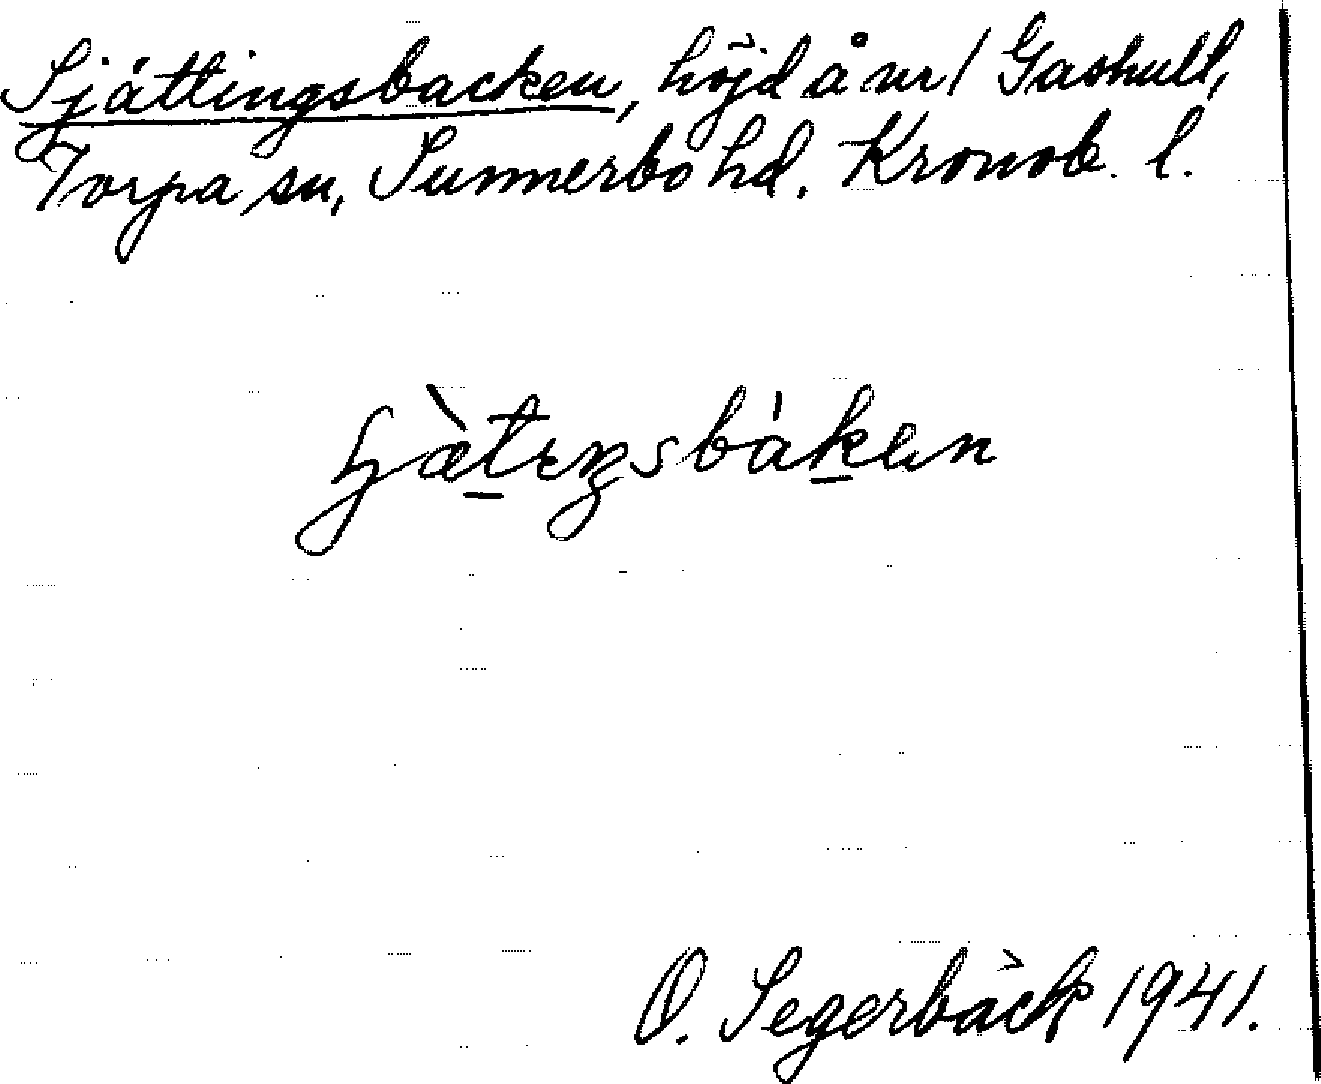 Sjättingsbacken, höjd å nr 1 Gashult,
Torpa sn, Sunnerbo hd. Kronob. l.
O. Segerbäck 1941.